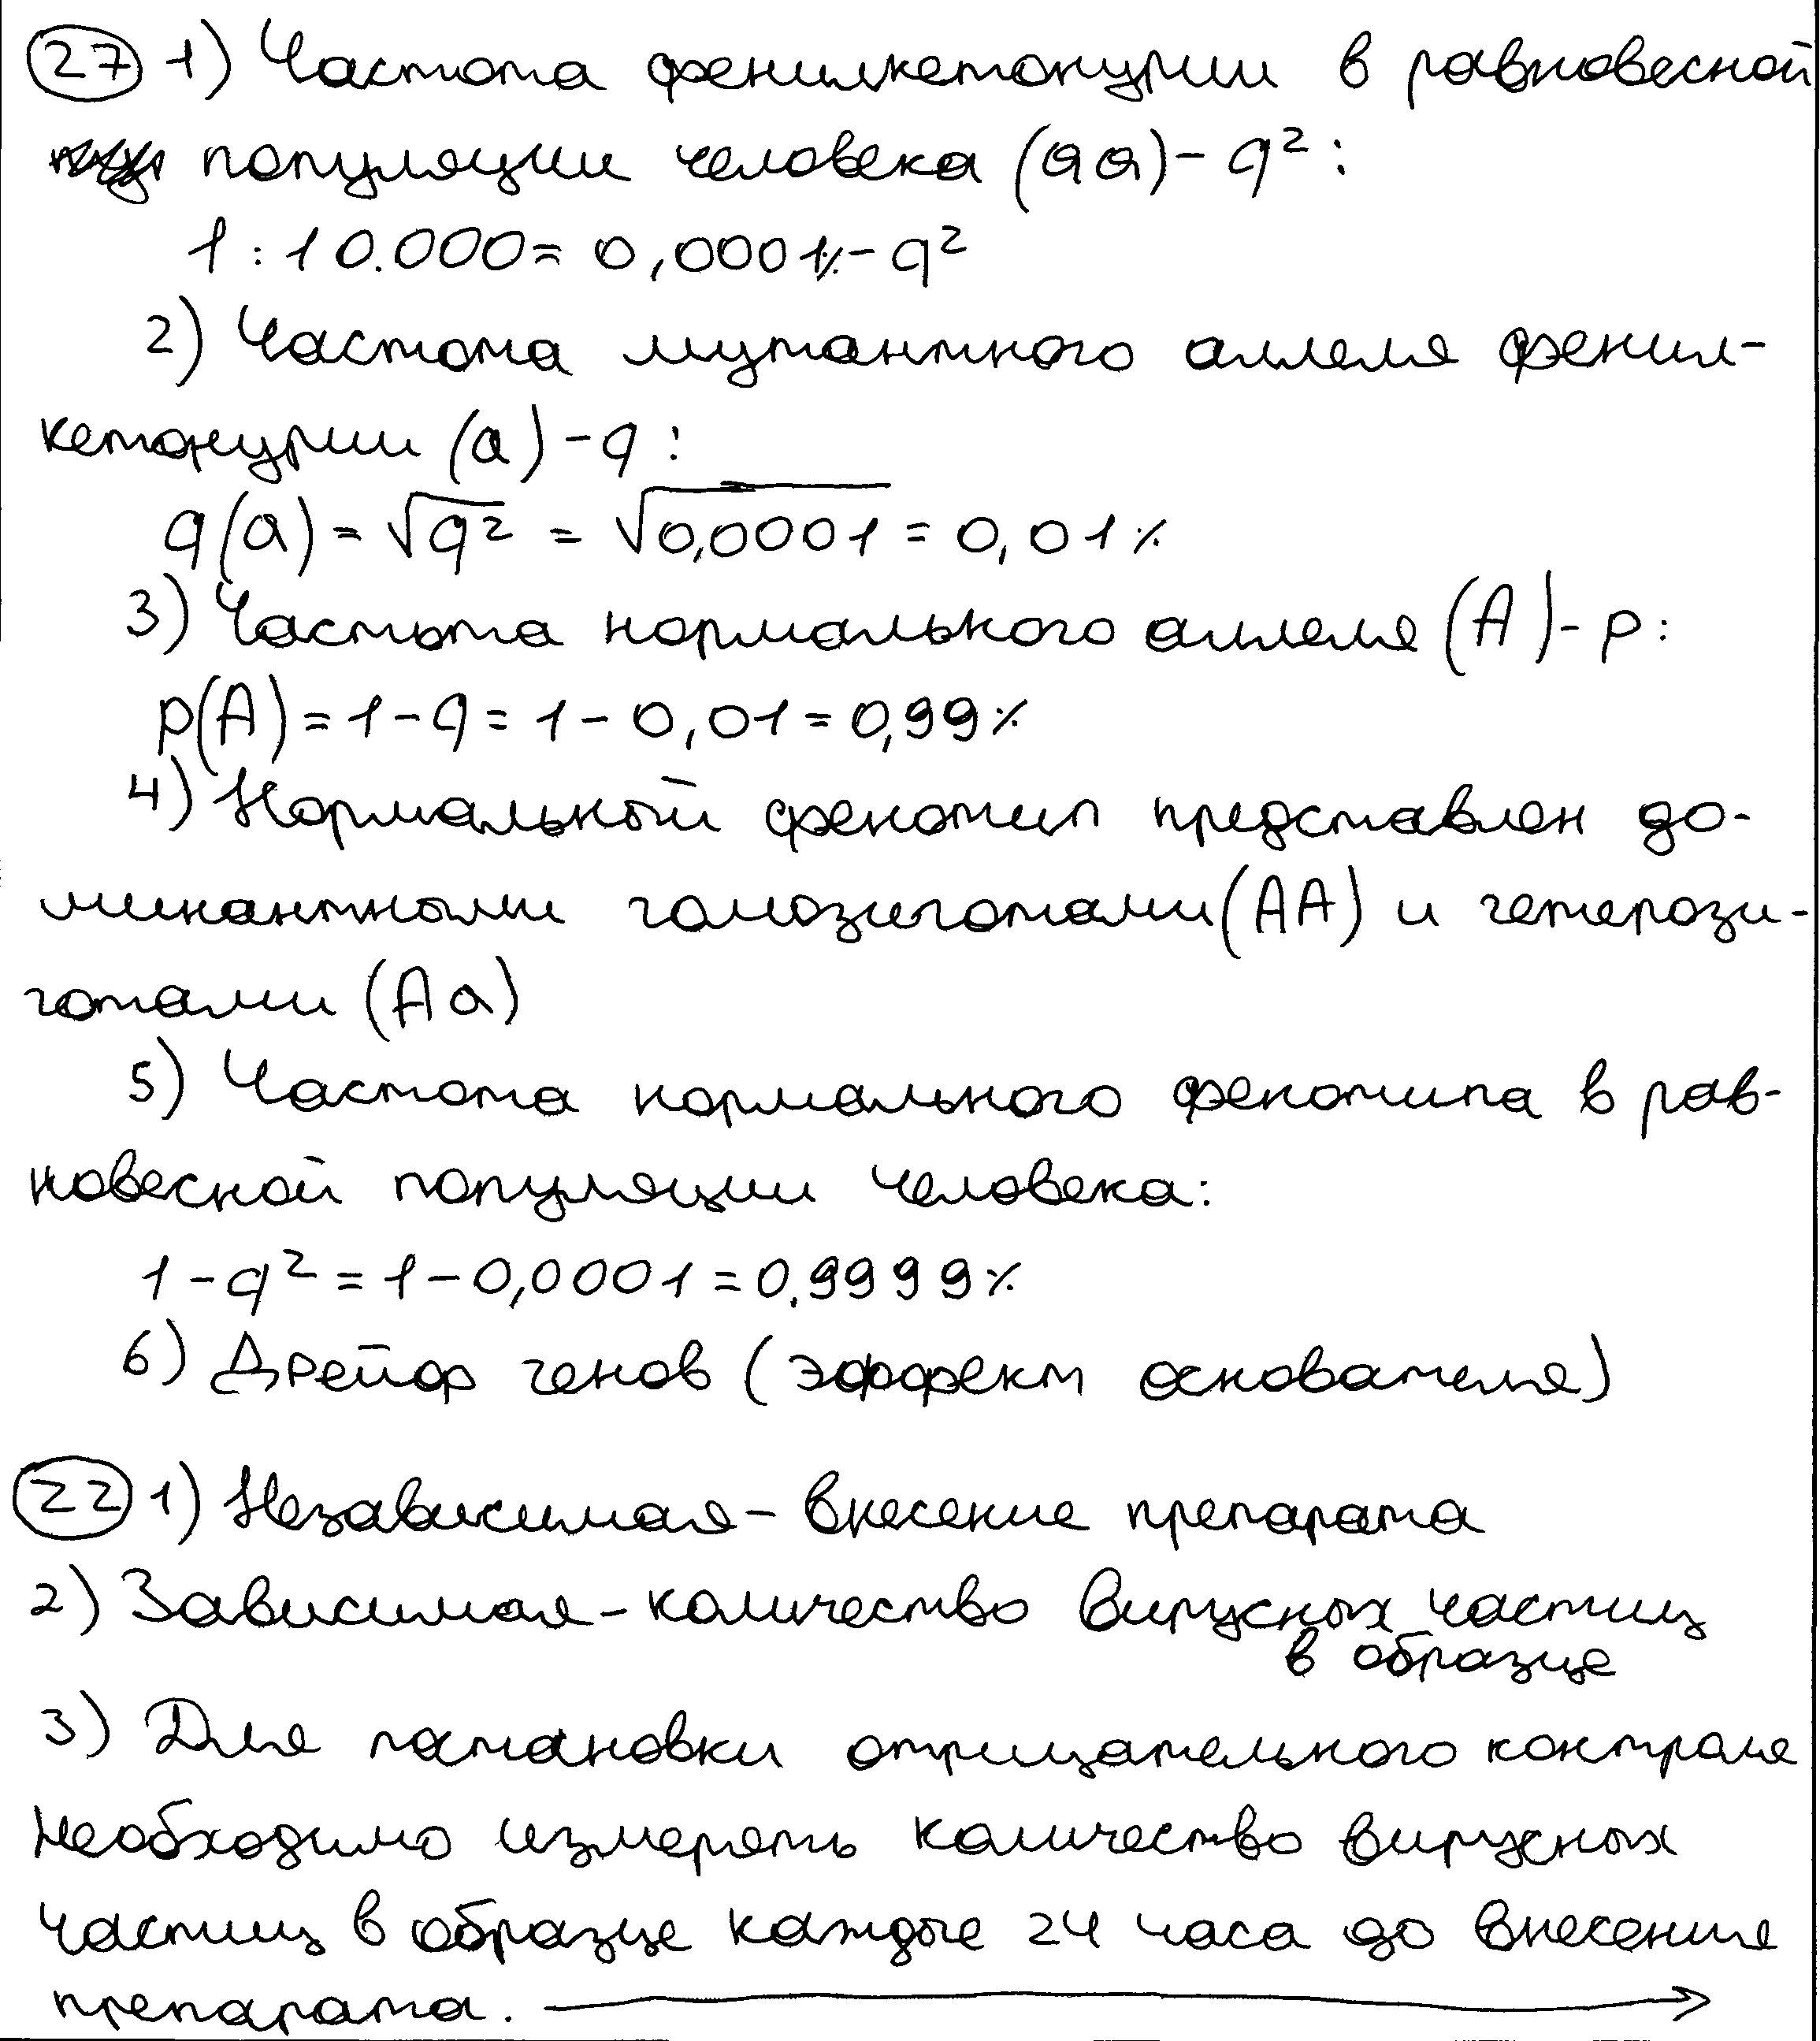 27 1) Частота фенилкетонурии в равновесной
популяции человека (aa) - q²:
1 : 10.000 = 0,0001% - q²
2) Частота мутантного аллеля фенил-
кетонурии (a) - q:
q(a) = √q² = √0,0001 = 0,01%
3) Частота нормального аллеля (A) - p:
p(A) = 1 - q = 1 - 0,01 = 0,99%
4) Нормальный фенотип представлен до-
минантными гомозиготами (AA) и гетерози-
готами (Aa)
5) Частота нормального фенотипа в рав-
новесной популяции человека:
1 - q² = 1 - 0,0001 = 0,9999%
6) Дрейф генов (эффект основателя)
22 1) Независимая - внесение препарата
2) Зависимая - количество вирусных частиц
в образце
3) Для постановки отрицательного контроля
необходимо измерять количество вирусных
частиц в образце каждые 24 часа до внесения
препарата. →